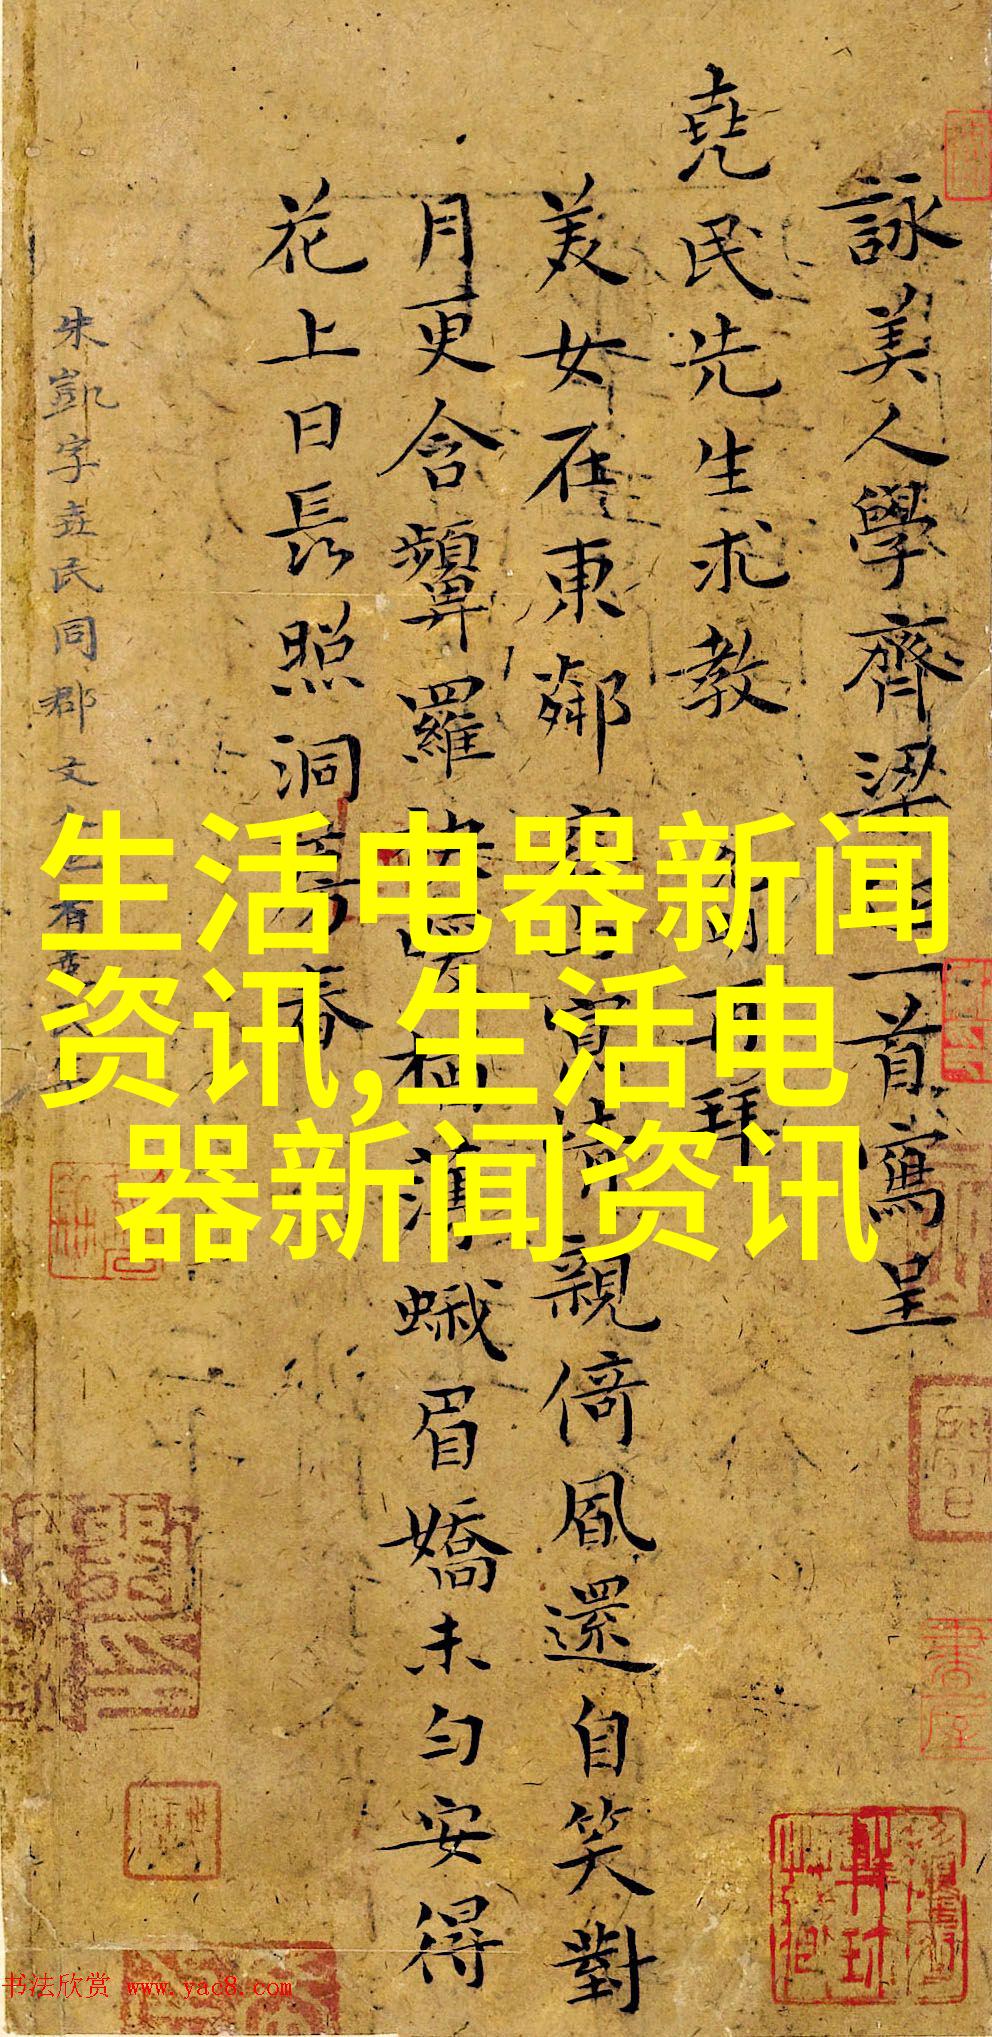 詠美人學齊梁體一首寫呈
堯民先生求教
再拜
美女在東鄰
親倚風還自笑對
月更含顰羅
薄蛾眉嬌未勻安得
花上日長照洞房春
朱凱字堯民同郡文
生活电器新闻
资讯,生活电
器新闻资讯
书法欣赏 www.yac8.com